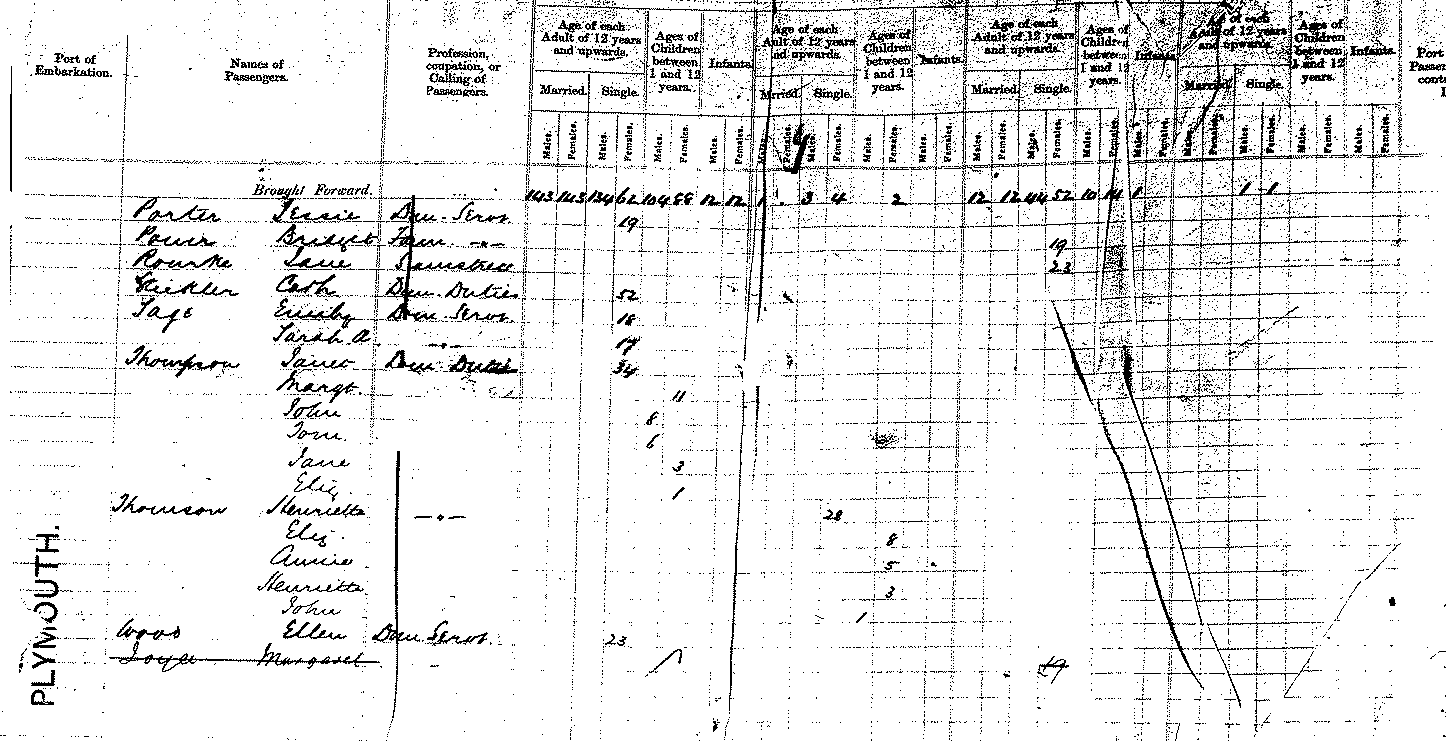 Port of Embarkation.
Names of Passengers.
Profession, ccupation, or Calling of Passengers.
Age of each Adult of 12 years and upwards. Ages of Children between 1 and 12 years. Infants. Age of each Adult of 12 years and upwards. Ages of Children between 1 and 12 years. Infants. Age of each Adult of 12 years and upwards. Ages of Children between 1 and 12 years. Infants. Age of each Adult of 12 years and upwards. Ages of Children between 1 and 12 years. Infants. Port
Married. Single. Married. Single. Married. Single. Married. Single.
Males. Females. Males. Females. Males. Females. Males. Females. Males. Females. Males. Females. Males. Females. Males. Females. Males. Females. Males. Females. Males. Females. Males. Females. Males. Females. Males. Females. Males. Females. Males. Females.
Brought Forward. 143 143 134 62 104 88 12 12 1 3 4 2 12 12 44 52 10 14 1 1 1
Porter Jessie Dom. Servt. 19
Power Bridget Farm -"- 19
Rourke Jane Seamstress 23
Cath Dom. Duties 52
Emily Dom Servt. 18
Sarah A. -"- 17
Thompson Janet Dom Duties 34
Margt. 11
John 8
Tom. 6
Jane 3
Eliz. 1
Thomson Henrietta -"- 28
Eliz. 8
Annie 5
Henrietta 3
John 1
Wood Ellen Dom Servt. 23
Joyce Margaret 19
PLYMOUTH.